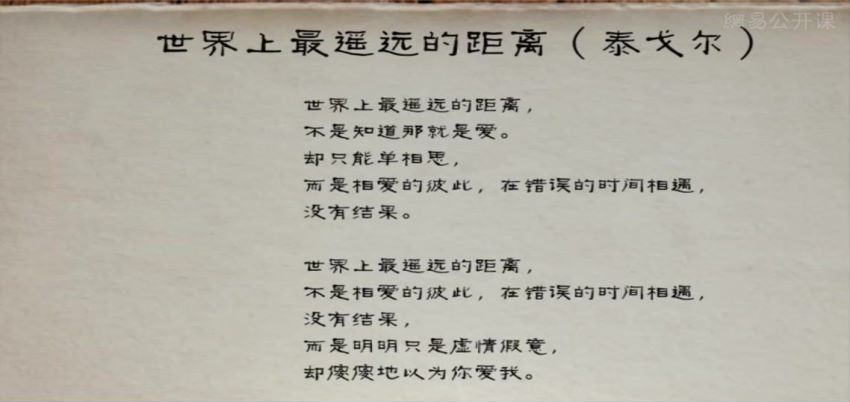 網易公开课
世界上最遥远的距离（泰戈尔）
世界上最遥远的距离，
不是知道那就是爱。
却只能单相思，
而是相爱的彼此，在错误的时间相遇，
没有结果。
世界上最遥远的距离，
不是相爱的彼此，在错误的时间相遇，
没有结果，
而是明明只是虚情假意，
却傻傻地以为你爱我。